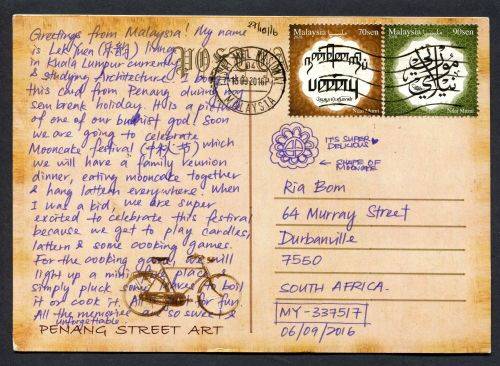 Greetings from Malaysia! My name
is Lek Juen living
in Kuala Lumpur currently
& studying Architecture. I bought
this card from Penang during
sem break holiday. This is a
of one of our buddhist god! Soon
we are going to celebrate
Mooncake festival (中秋节) which
we will have a family reunion
dinner, eating mooncake together
& hang lattern everywhere. When
I was a kid, we are super
excited to celebrate this festival
because we get to play candles,
lattern & some cooking games.
For the cooking game, we will
light up a mini fire place,
simply pluck some leaves to boil
it or cook it. All just for fun.
All the memories are so sweet &
unforgettable
PENANG STREET ART
POSTCARD
MALAYSIA
Malaysia 70sen
நன்னெறிப்
பண்பு
Nilai Murni
Malaysia 90sen
Nilai Murni
IT'S SUPER
DELICIOUS
← SHAPE OF
MOONCAKE
Ria Bom
64 Murray Street
Durbanville
7550
SOUTH AFRICA.
MY-337517
06/09/2016